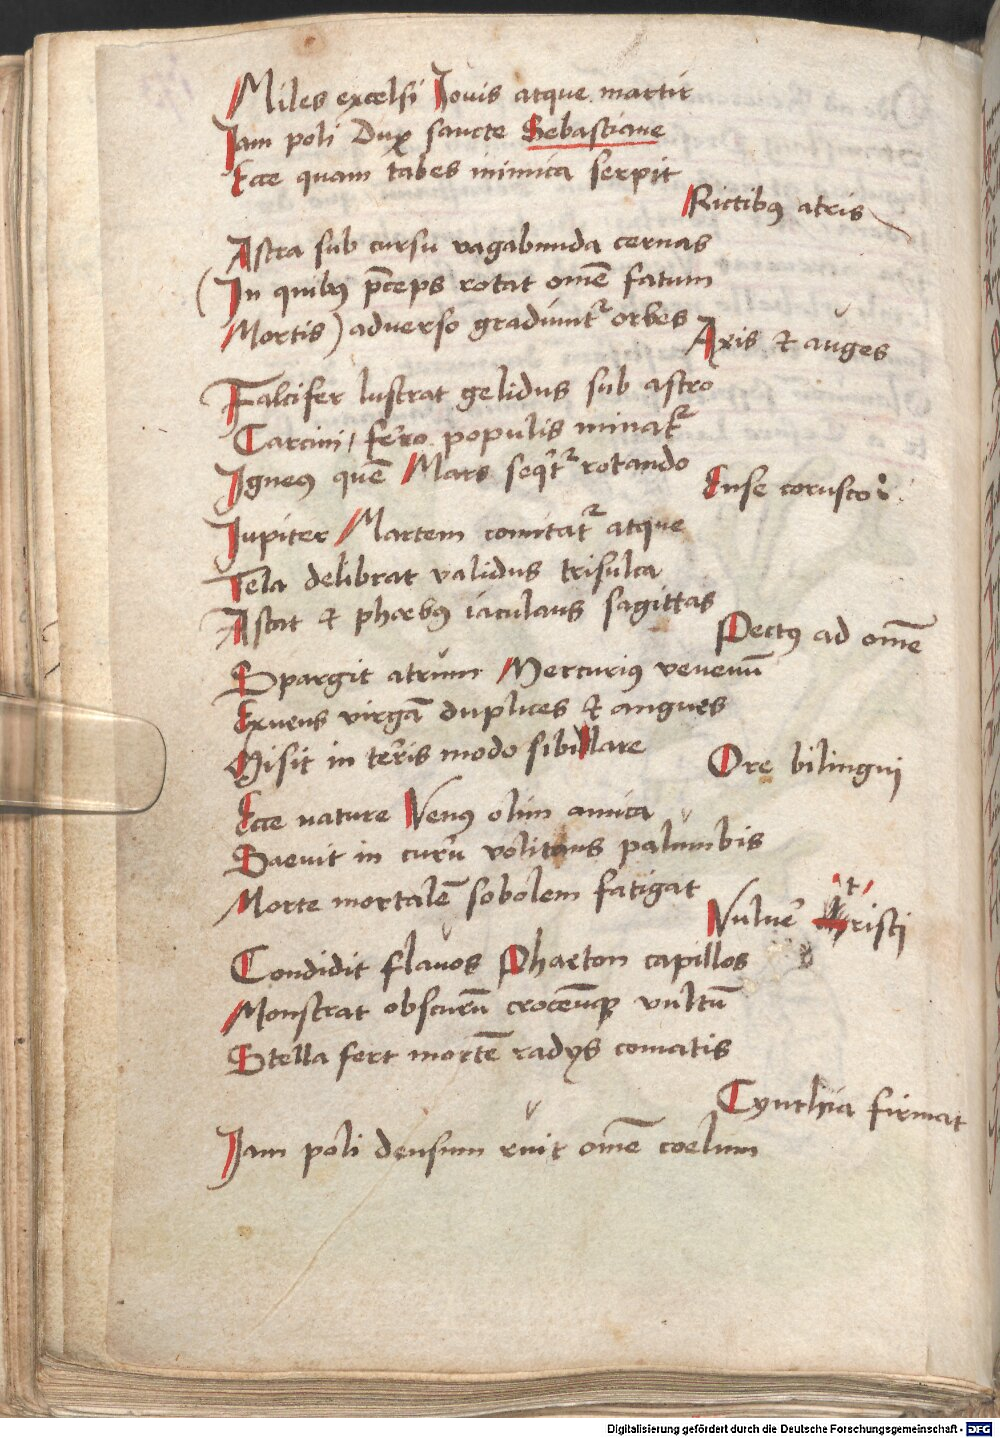 Miles excelsi Iouis atque martir
Iam poli Dux sancte Sebastiane
Ecce quam tabes inimica serpit
Rictibꝰ atris
Astra sub cursu vagabunda cernas
(In quibꝰ p̄ceps rotat om̄e fatum
Mortis) aduerso gradiunt᷑ orbes
Axis & auges
Falcifer lustrat gelidus sub astro
Carcini, ferro populis minat᷑
Igneꝰ quē Mars seq̄t᷑ rotando
Ense corusco
Iupiter Martem comitat᷑ atque
Tela delibrat validus trisulca
Astat & phœbꝰ iaculans sagittas
Pectꝰ ad om̄e
Spargit atrum Mercuriꝰ venenū
Exuens virgā duplices & angues
Misit in terris modo sibillare
Ore bilingui
Ecce nature Venꝰ olim amica
Saeuit in currū volitans palumbis
Morte mortalē sobolem fatigat
Vulnere tristi
Condidit flauos Phaeton capillos
Monstrat obscurū croceūqꝫ vultū
Stella fert mortē radijs comatis
Cynthia firmat
Iam poli densum ruit om̄e coelum
Digitalisierung gefördert durch die Deutsche Forschungsgemeinschaft - DFG